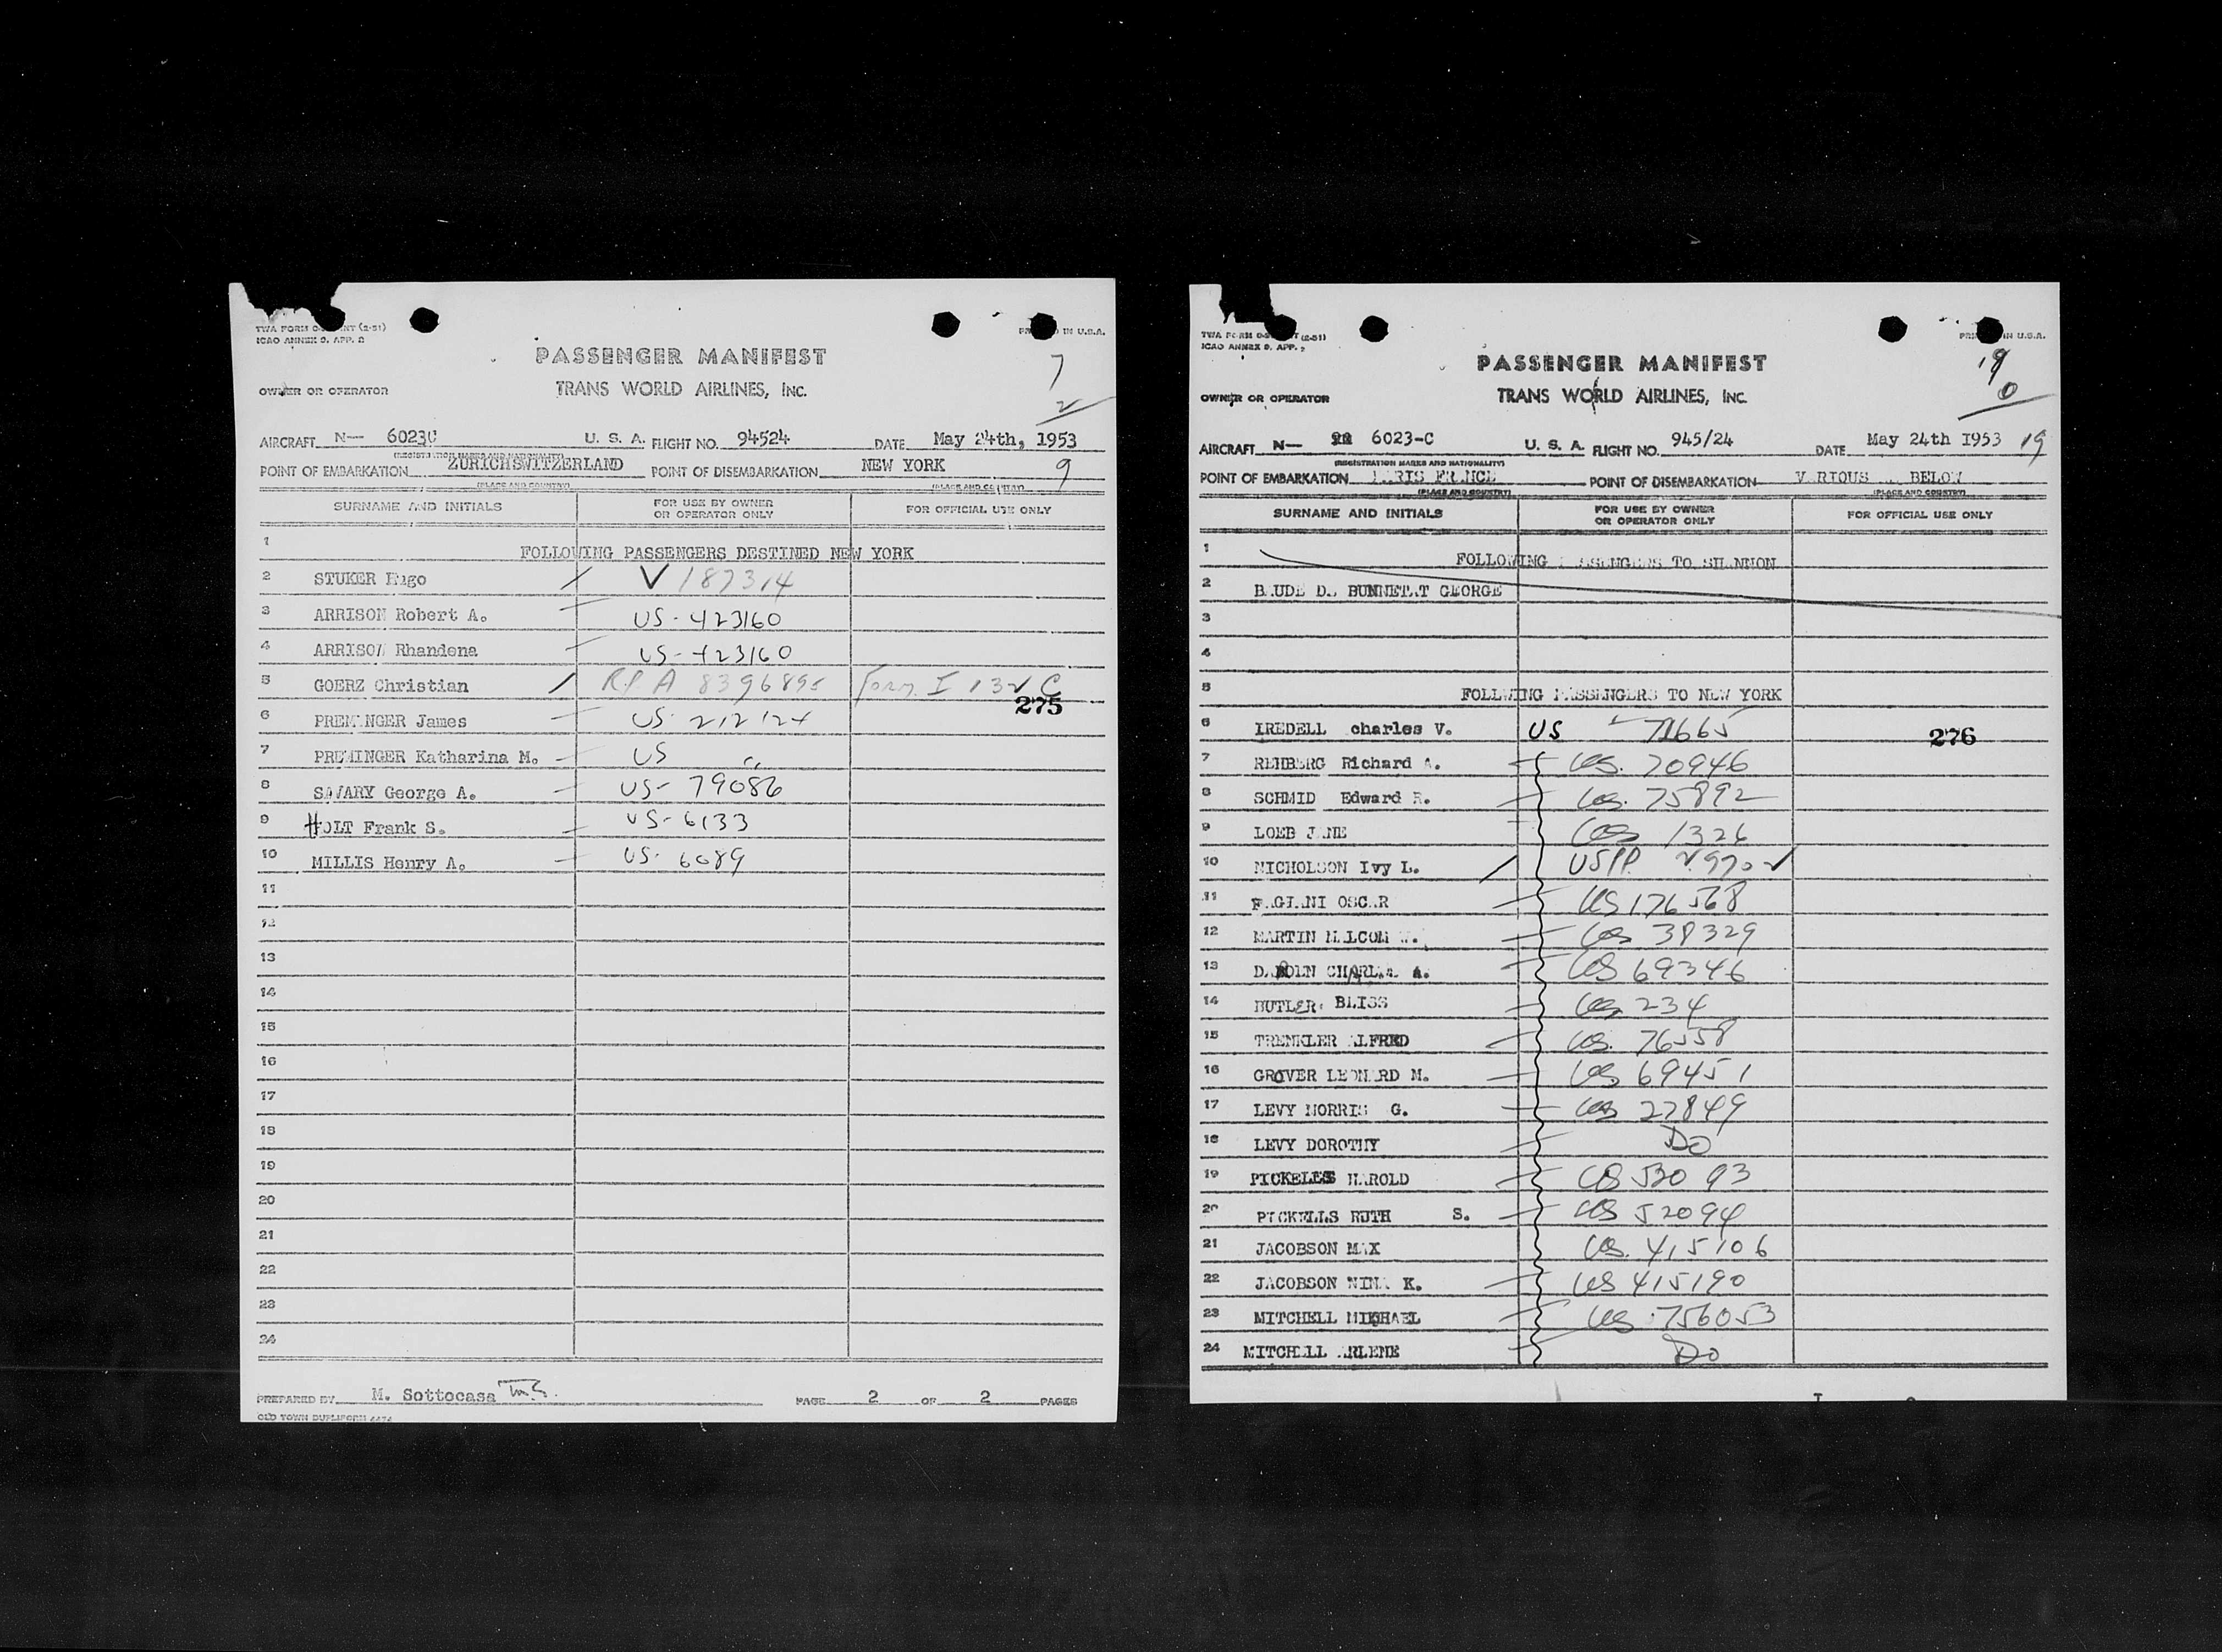 TWA FORM
(2-51)
ICAO ANNEX 9. APP. 2
IN U.S.A.
PASSENGER MANIFEST
7
OWNER OR OPERATOR
TRANS WORLD AIRLINES, INC.
2
AIRCRAFT N— 6023C U. S. A. FLIGHT NO. 94524 DATE May 24th, 1953
(REGISTRATION MARKS AND NATIONALITY)
POINT OF EMBARKATION ZURICHSWITZERLAND POINT OF DISEMBARKATION NEW YORK 9
(PLACE AND COUNTRY) (PLACE AND COUNTRY)
SURNAME AND INITIALS FOR USE BY OWNER OR OPERATOR ONLY FOR OFFICIAL USE ONLY
1 FOLLOWING PASSENGERS DESTINED NEW YORK
2 STUKER Hugo / V 187314
3 ARRISON Robert A. — US - 423160
4 ARRISON Rhandena — US - 423160
5 GOERZ Christian / A 8396895 Form I 132 C
275
6 PREMINGER James — US 212124
7 PREMINGER Katharina M. — US "
8 SAVARY George A. — US- 79086
9 HOLT Frank S. — US - 6133
10 MILLIS Henry A. — US- 6089
11
12
13
14
15
16
17
18
19
20
21
22
23
24
PREPARED BY M. Sottocasa PAGE 2 OF 2 PAGES
OLD TOWN DUPLIFORM
TWA FORM
(2-51)
ICAO ANNEX 9. APP. 2
IN U.S.A.
PASSENGER MANIFEST
19
OWNER OR OPERATOR
TRANS WORLD AIRLINES, INC.
0
AIRCRAFT N— 6023-C U. S. A. FLIGHT NO. 945/24 DATE May 24th I953 19
(REGISTRATION MARKS AND NATIONALITY)
POINT OF EMBARKATION PARIS FRANCE POINT OF DISEMBARKATION VARIOUS BELOW
(PLACE AND COUNTRY) (PLACE AND COUNTRY)
SURNAME AND INITIALS FOR USE BY OWNER OR OPERATOR ONLY FOR OFFICIAL USE ONLY
1 FOLLOWING PASSENGERS TO SHANNON
2 GEORGE
3
4
5 FOLLWING PASSENGERS TO NEW YORK
6 IREDELL charles V. US 71665
276
7 REHBERG Richard A. — US. 70946
8 SCHMID Edward R. — US. 75892
9 LOEB JANE — US 1326
10 NICHOLSON Ivy L. / USPP
11 PAGIANI OSCAR — US 176568
12 MARTIN MALCOM W. — US 38329
13 A. — US 69346
14 BUTLER BLISS — US 234
15 TRENKLER ALFRED — US. 76558
16 GROVER LEONARD M. — US 69451
17 LEVY MORRIS G. — US 22849
18 LEVY DOROTHY — Do
19 PICKELLS HAROLD — US 52093
20 PICKELLS RUTH S. — US 52094
21 JACOBSON MAX US. 415106
22 JACOBSON NINA K. — US 415190
23 MITCHELL MICHAEL — US 756053
24 MITCHELL ARLENE — Do